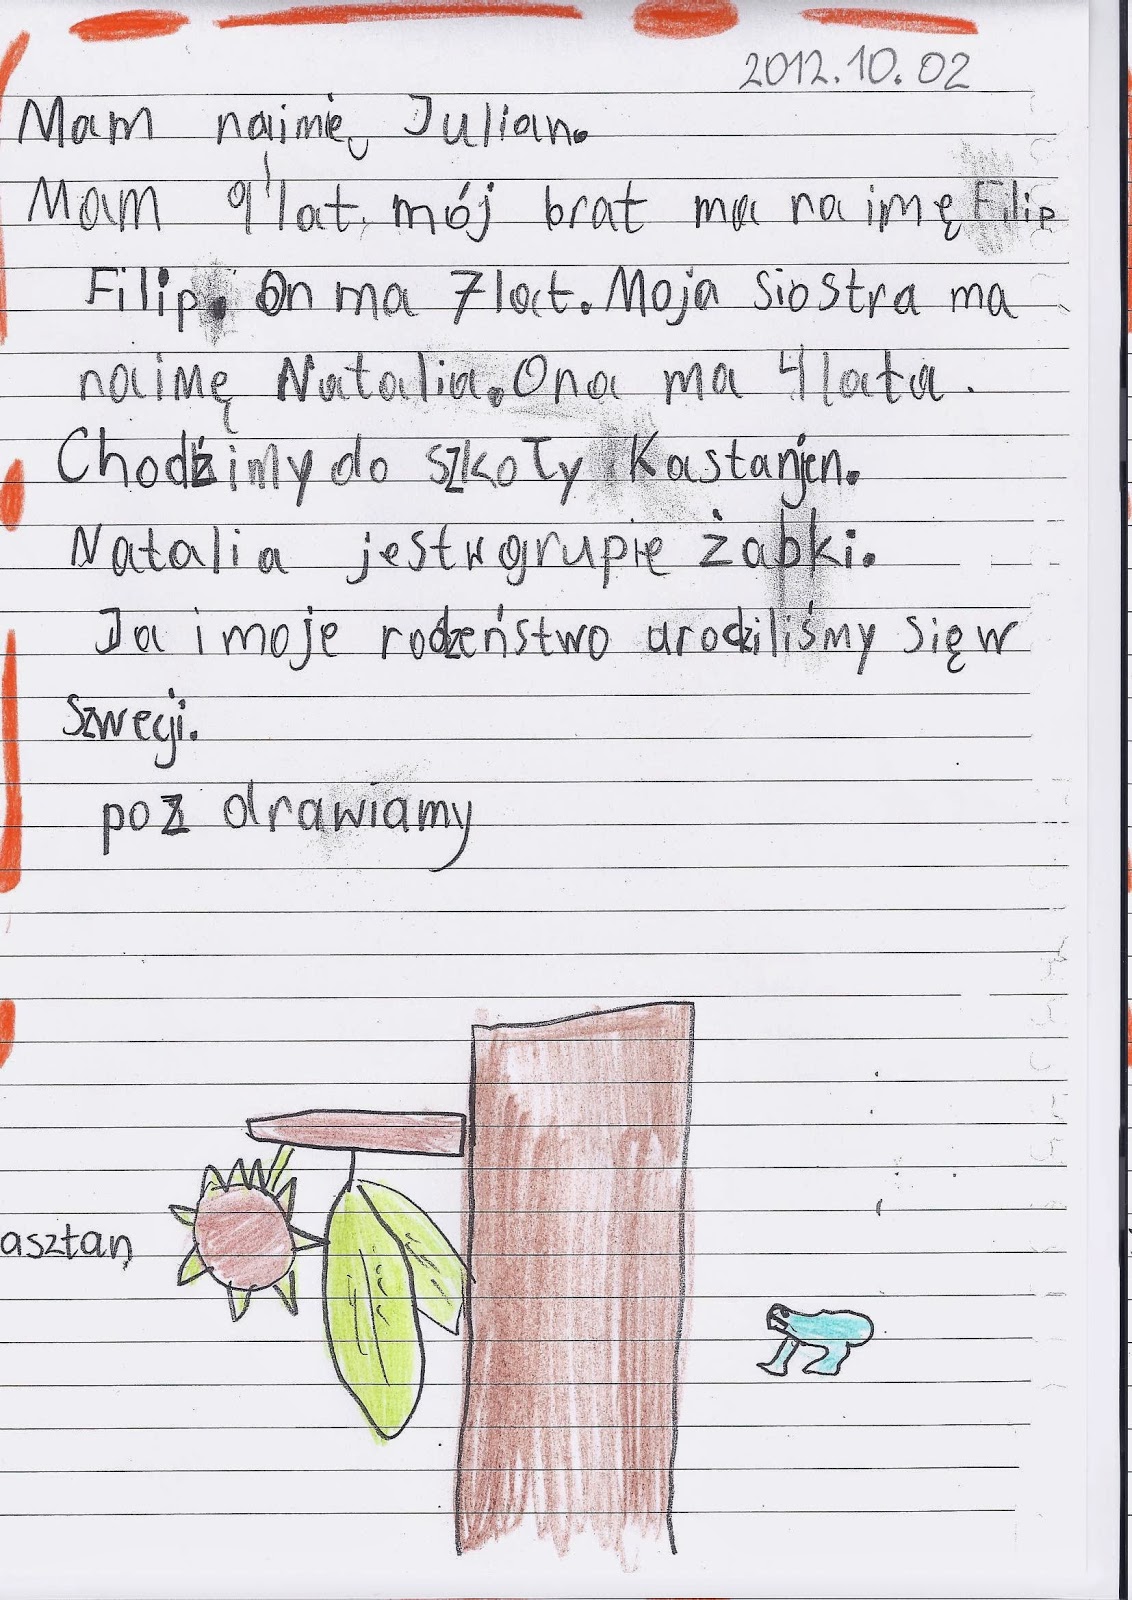 2012.10.02
Mam naimię Julian.
Mam 9 lat. mój brat ma na imę Filip
Filip. On ma 7 lat. Moja siostra ma
naimę Natalia. Ona ma 4 lata.
Chodźimy do szkoły Kastanjen.
Natalia jest w grupię żabki.
Ja i moje rodzeństwo urodziliśmy się w
szwecji.
poz drawiamy
asztan